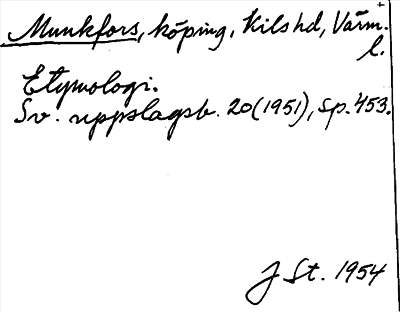 Munkfors, köping, Kils hd, Värm.
l.
Etymologi.
Sv. uppslagsb. 20 (1951), sp. 453.
J St. 1954